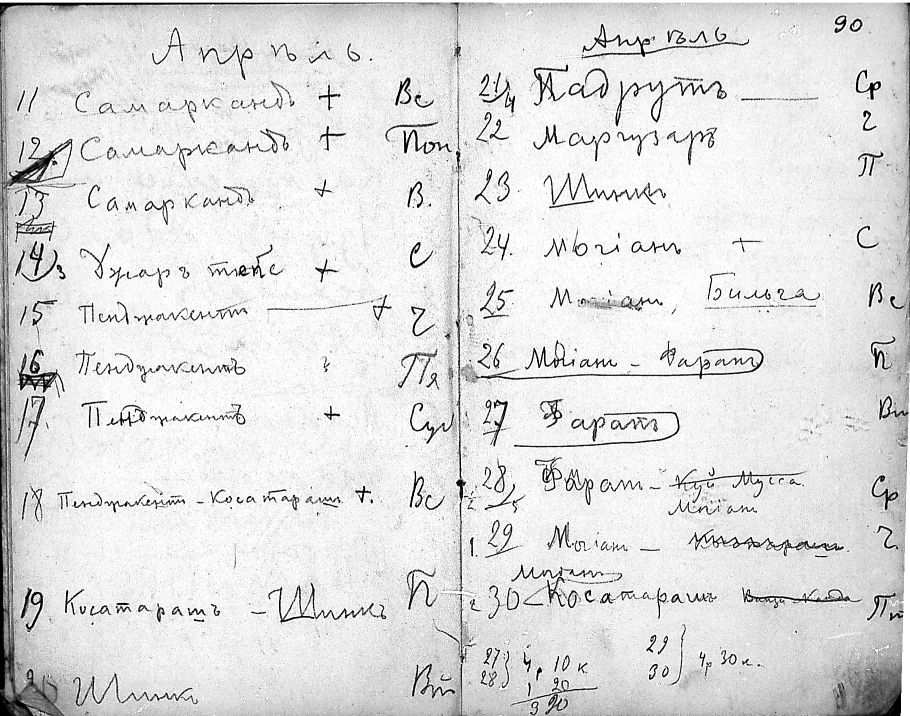 Апрѣль.
11 Самаркандъ + Вс
12 Самаркандъ + Пон
13 Самаркандъ + В.
14 Джаръ тепе + С
15 Пенджакентъ — + Ч
16 Пенджакентъ ? Пя
17. Пенджакентъ + Суб
18 Пенджакентъ - Косатарашъ +. Вс
19 Косатарашъ - Шинкъ П
Шинкъ Вт
90
Апрѣль
21/4 Падрутъ — Ср
22 Маргузаръ Ч
23. Шинкъ П
24. Могіанъ + С
25 Могіанъ, Бильга Вс
26 Могіанъ - Фарапъ П
27 Фарапъ Вт
28 Фарап - Куй Мусса Ср
Могіанъ
1. 29 Могіан - Ч.
Могіанъ
2. 30 Косатарашъ Пт
27 28 } 4р 10 к 29 30 } 4р 30 к.
1 20
3 90